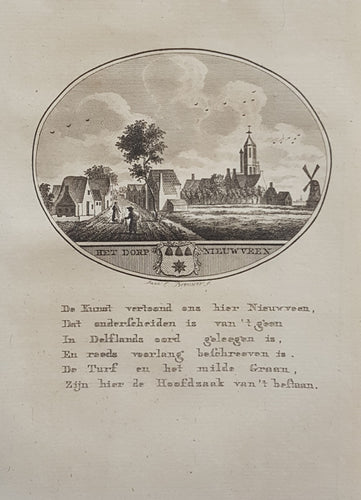 HET DORP NIEUWVEEN
De Kunst vertoond ons hier Nieuwveen,
Dat onderscheiden is van 't geen
In Delflands oord geleegen is,
En reeds voorlang beschreeven is.
De Turf en het milde Graan,
Zijn hier de Hoofdzaak van 't bestaan.